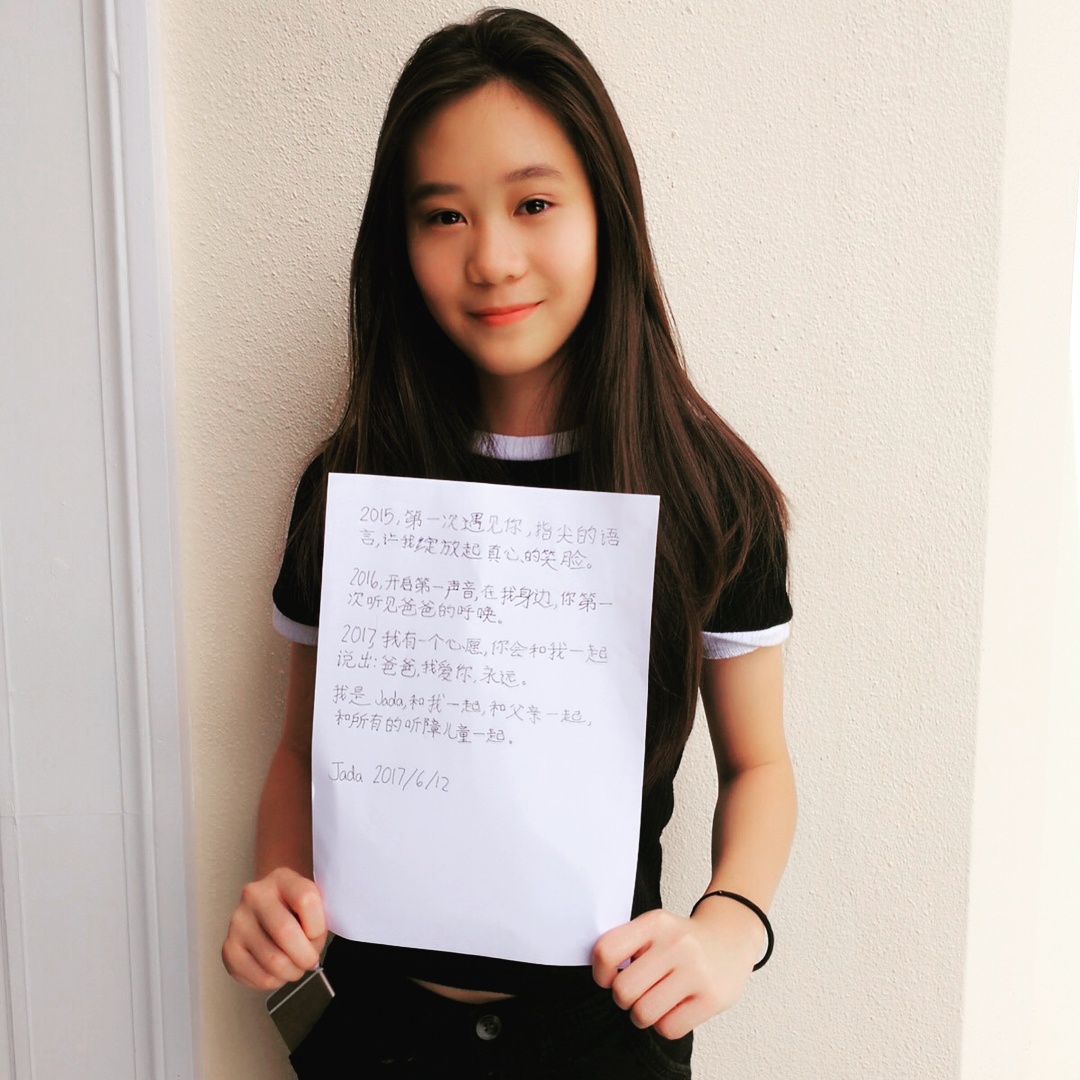 2015,第一次遇见你,指尖的语
言,让我绽放起真心的笑脸。
2016,开启第一声音,在我身边,你第一
次听见爸爸的呼唤。
2017,我有一个心愿,你会和我一起
说出:爸爸,我爱你,永远。
我是Jada,和我一起,和父亲一起,
和所有的听障儿童一起。
Jada 2017/6/12